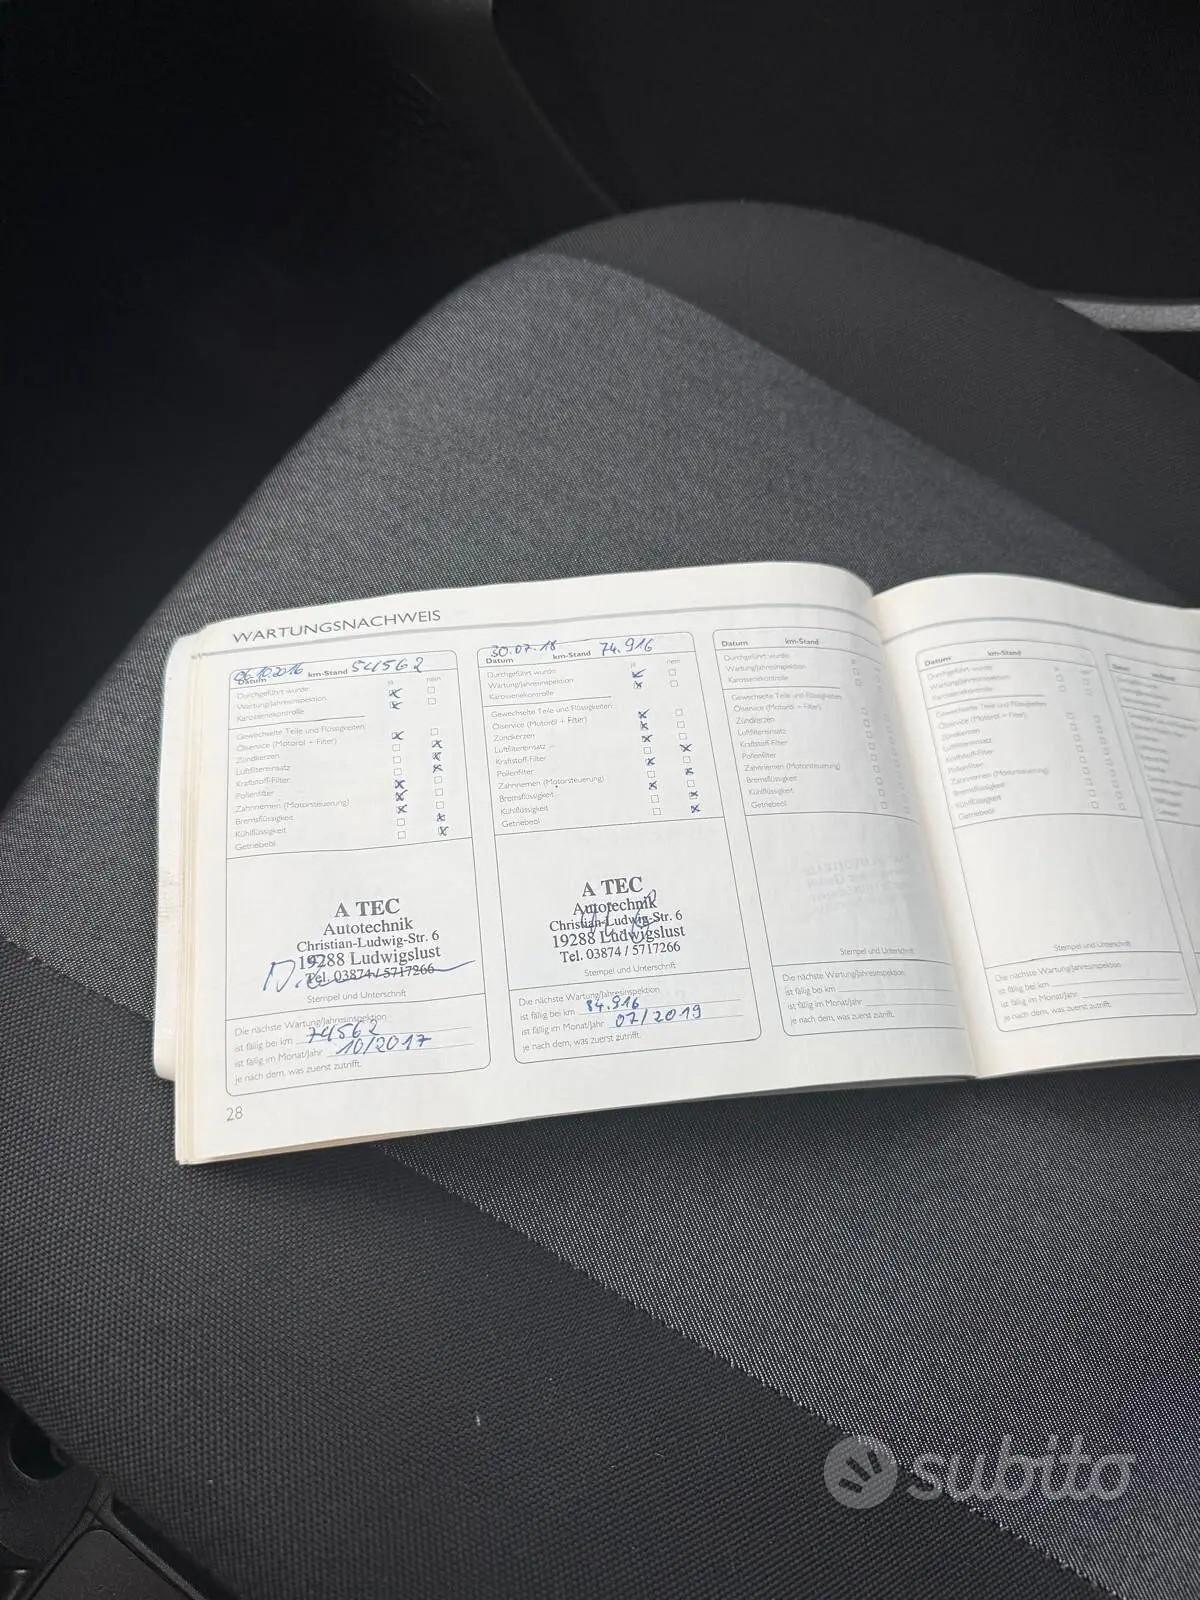 WARTUNGSNACHWEIS
06.10.2016 54562
Datum km-Stand
ja nein
Durchgeführt wurde:
Wartung/Jahresinspektion
Karosseriekontrolle
Gewechselte Teile und Flüssigkeiten:
Ölservice (Motoröl + Filter)
Zündkerzen
Luftfiltereinsatz
Kraftstoff-Filter
Pollenfilter
Zahnriemen (Motorsteuerung)
Bremsflüssigkeit
Kühlflüssigkeit
Getriebeöl
A TEC
Autotechnik
Christian-Ludwig-Str. 6
19288 Ludwigslust
Tel. 03874 / 5717266
Stempel und Unterschrift
Die nächste Wartung/Jahresinspektion
ist fällig bei km 74562
ist fällig im Monat/Jahr 10/2017
je nach dem, was zuerst zutrifft.
28
30.07.18 74.916
Datum km-Stand
ja nein
Durchgeführt wurde:
Wartung/Jahresinspektion
Karosseriekontrolle
Gewechselte Teile und Flüssigkeiten:
Ölservice (Motoröl + Filter)
Zündkerzen
Luftfiltereinsatz
Kraftstoff-Filter
Pollenfilter
Zahnriemen (Motorsteuerung)
Bremsflüssigkeit
Kühlflüssigkeit
Getriebeöl
A TEC
Autotechnik
Christian-Ludwig-Str. 6
19288 Ludwigslust
Tel. 03874 / 5717266
Stempel und Unterschrift
Die nächste Wartung/Jahresinspektion
ist fällig bei km 84.916
ist fällig im Monat/Jahr 07/2019
je nach dem, was zuerst zutrifft.
Datum km-Stand
Durchgeführt wurde:
Wartung/Jahresinspektion
Karosseriekontrolle
Gewechselte Teile und Flüssigkeiten:
Ölservice (Motoröl + Filter)
Zündkerzen
Luftfiltereinsatz
Kraftstoff-Filter
Pollenfilter
Zahnriemen (Motorsteuerung)
Bremsflüssigkeit
Kühlflüssigkeit
Getriebeöl
Stempel und Unterschrift
Die nächste Wartung/Jahresinspektion
ist fällig bei km
ist fällig im Monat/Jahr
je nach dem, was zuerst zutrifft.
Datum km-Stand
Durchgeführt wurde:
Wartung/Jahresinspektion
Karosseriekontrolle
Gewechselte Teile und Flüssigkeiten:
Ölservice (Motoröl + Filter)
Zündkerzen
Luftfiltereinsatz
Kraftstoff-Filter
Pollenfilter
Zahnriemen (Motorsteuerung)
Bremsflüssigkeit
Kühlflüssigkeit
Getriebeöl
Stempel und Unterschrift
Die nächste Wartung/Jahresinspektion
ist fällig bei km
ist fällig im Monat/Jahr
je nach dem, was zuerst zutrifft.
Datum
subito